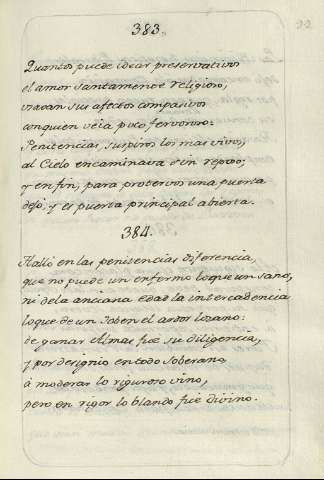 383.
Quantos puede idear preservativos
el amor santamente religioso,
usavan sus afectos compasivos
con quien veía poco fervoroso:
Penitencias, suspiros los mas vivos,
al Cielo encaminava sin reposo;
y en fin, para protervos una puerta
dejó: y es puerta principal abierta.
384.
Halló en las penitencias diferencia,
que no puede un enfermo lo que un sano,
ni de la anciana edad la intercadencia
lo que de un Joben el ardor lozano:
de ganar almas fue su diligencia,
y por designio en todo Soberano
á moderar lo riguroso vino,
pero en rigor lo blando fue divino.